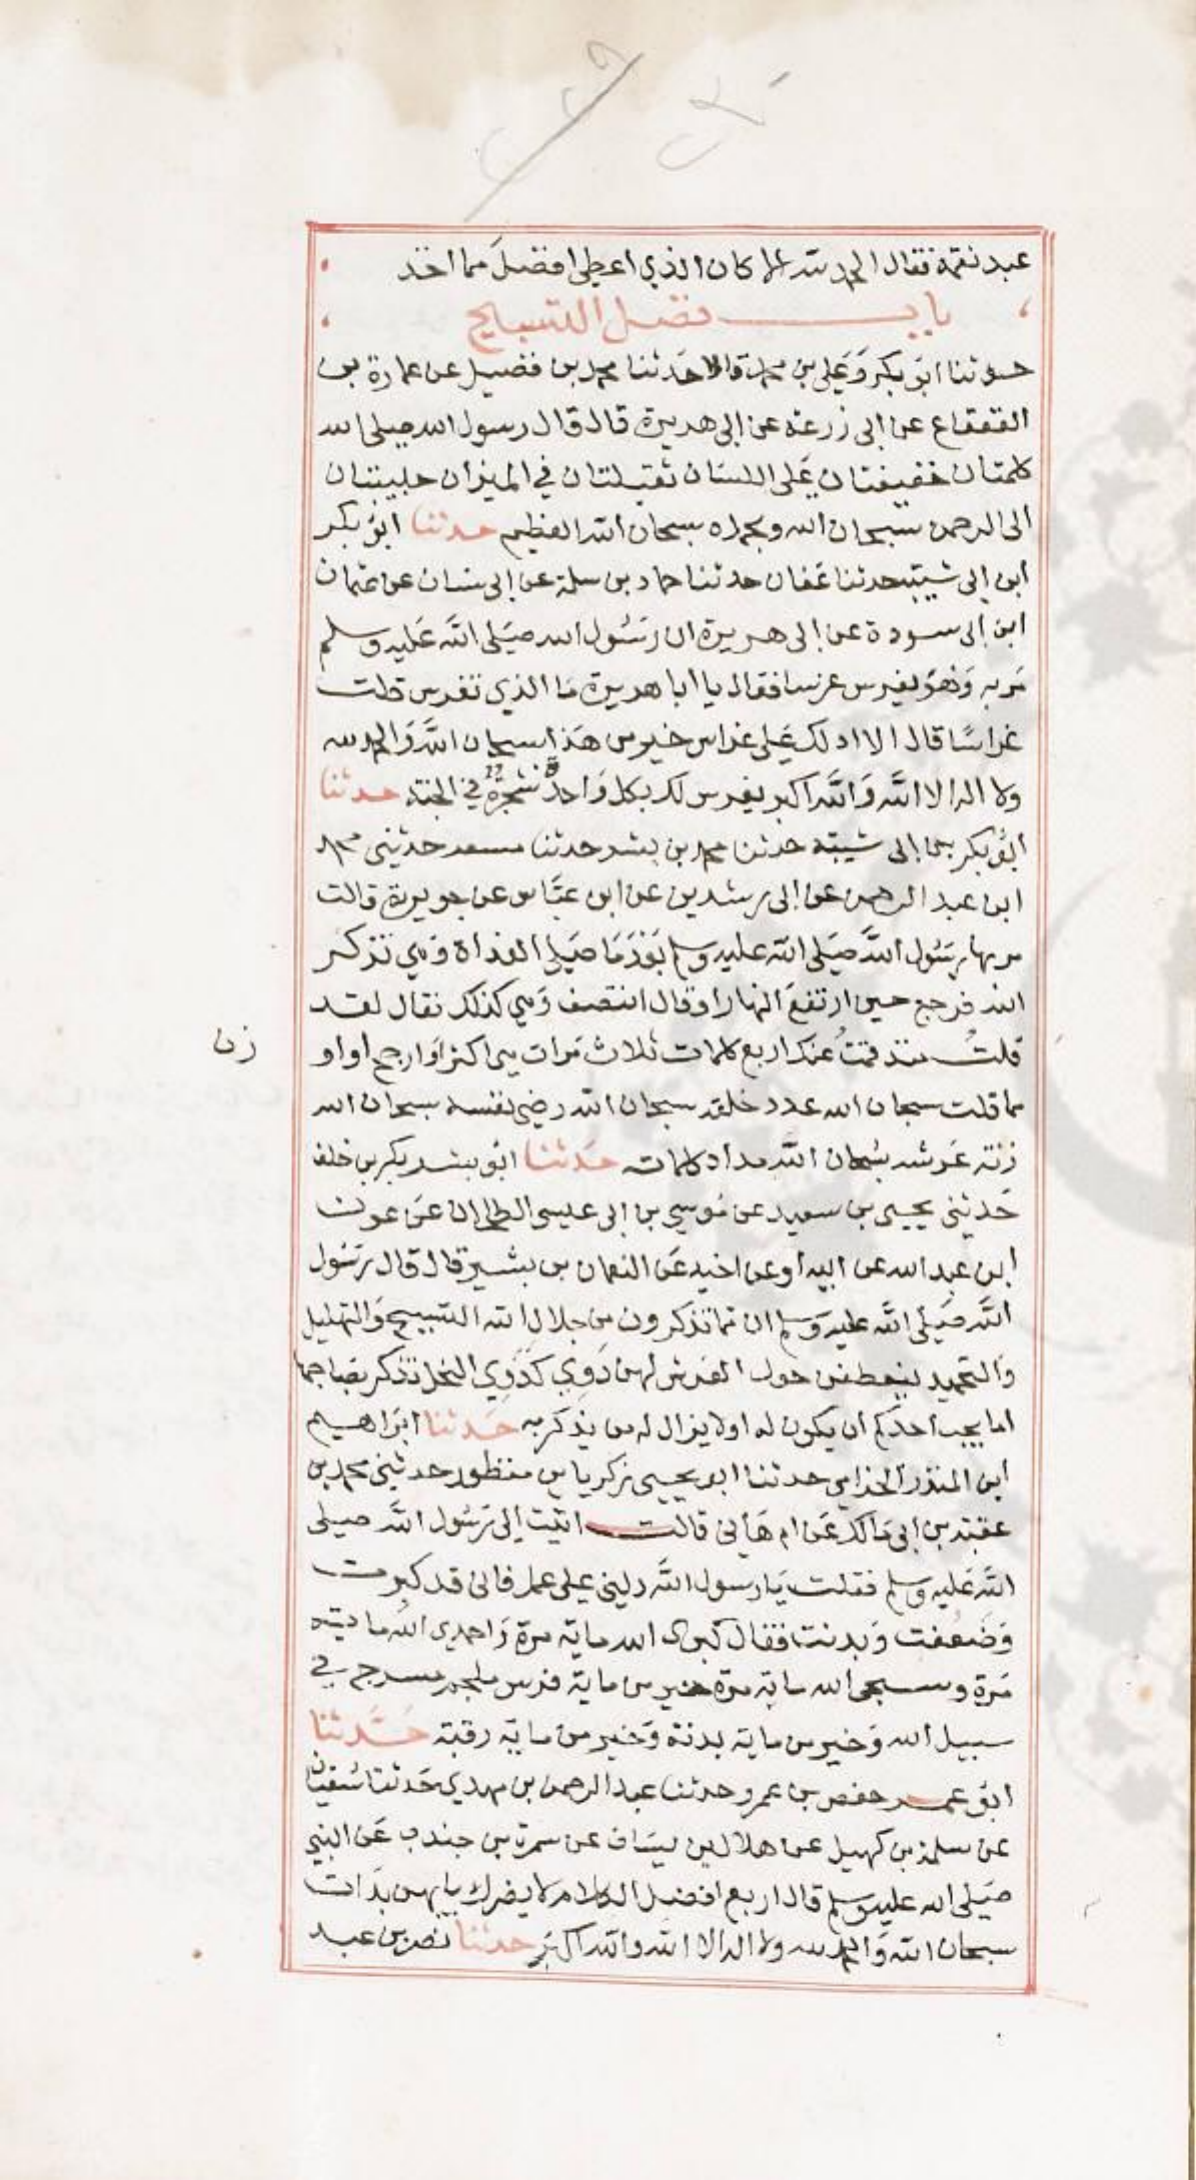 عبد نعمة فقال الحمد لله الا كان الذي اعطي افضل مما اخذ
باب فضل التسبيح
حدثنا ابو بكر وعلي بن محمد قالا حدثنا محمد بن فضيل عن عمارة بن
القعقاع عن ابي زرعة عن ابي هريرة قال قال رسول الله صلى الله
كلمتان خفيفتان على اللسان ثقيلتان في الميزان حبيبتان
الى الرحمن سبحان الله وبحمده سبحان الله العظيم حدثنا ابو بكر
ابن ابي شيبة حدثنا عفان حدثنا حماد بن سلمة عن ابي سنان عن عثمان
ابن ابي سودة عن ابي هريرة ان رسول الله صلى الله عليه وسلم
مر به وهو يغرس غرسا فقال يا ابا هريرة ما الذي تغرس قلت
غراسا قال الا ادلك على غراس خير من هذا سبحان الله والحمد لله
ولا اله الا الله والله اكبر يغرس لك بكل واحدة شجرة في الجنة حدثنا
ابو بكر بن ابي شيبة حدثنا محمد بن بشر حدثنا مسعر حدثني محمد
ابن عبد الرحمن عن ابي رشدين عن ابن عباس عن جويرية قالت
مر بها رسول الله صلى الله عليه وسلم بعد ما صلى الغداة وهي تذكر
الله فرجع حين ارتفع النهار او قال انتصف وهي كذلك فقال لقد
قلت منذ قمت عنك اربع كلمات ثلاث مرات هي اكثر او ارجح او او
زن
مما قلت سبحان الله عدد خلقه سبحان الله رضى نفسه سبحان الله
زنة عرشه سبحان الله مداد كلماته حدثنا ابو بشر بكر بن خلف
حدثني يحيى بن سعيد عن موسى بن ابي عيسى الطحان عن عون
ابن عبد الله عن ابيه او عن اخيه عن النعمان بن بشير قال قال رسول
الله صلى الله عليه وسلم ان مما تذكرون من جلال الله التسبيح والتهليل
والتحميد ينعطفن حول العرش لهن دوي كدوي النحل تذكر بصاحبها
اما يحب احدكم ان يكون له او لا يزال له من يذكر به حدثنا ابراهيم
ابن المنذر الحزامي حدثنا ابو يحيى زكريا بن منظور حدثني محمد بن
عقبة بن ابي مالك عن ام هاني قالت اتيت الى رسول الله صلى
الله عليه وسلم فقلت يا رسول الله دلني على عمل فاني قد كبرت
وضعفت وبدنت فقال كبري الله ماية مرة واحمدي الله ماية
مرة وسبحي الله ماية مرة خير من ماية فرس ملجم مسرج في
سبيل الله وخير من ماية بدنة وخير من ماية رقبة حدثنا
ابو عمر حفص بن عمرو حدثنا عبد الرحمن بن مهدي حدثنا سفيان
عن سلمة بن كهيل عن هلال بن يساف عن سمرة بن جندب عن النبي
صلى الله عليه وسلم قال اربع افضل الكلام لا يضرك بايهن بدات
سبحان الله والحمد لله ولا اله الا الله والله اكبر حدثنا نصر بن عبد